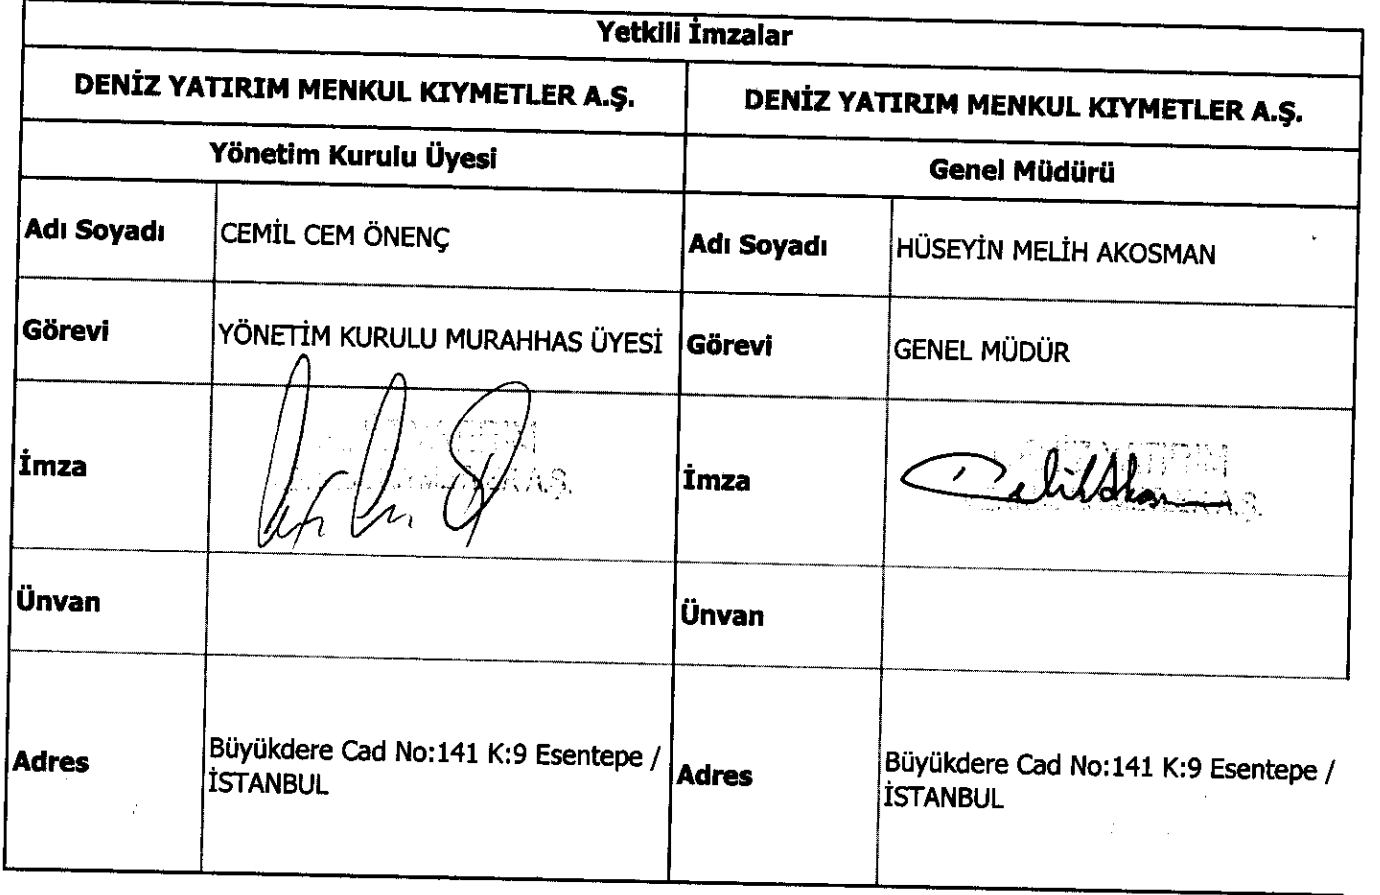 Yetkili İmzalar
DENİZ YATIRIM MENKUL KIYMETLER A.Ş.
DENİZ YATIRIM MENKUL KIYMETLER A.Ş.
Yönetim Kurulu Üyesi
Genel Müdürü
Adı Soyadı
CEMİL CEM ÖNENÇ
Adı Soyadı
HÜSEYİN MELİH AKOSMAN
Görevi
YÖNETİM KURULU MURAHHAS ÜYESİ
Görevi
GENEL MÜDÜR
İmza
İmza
Ünvan
Ünvan
Adres
Büyükdere Cad No:141 K:9 Esentepe /
İSTANBUL
Adres
Büyükdere Cad No:141 K:9 Esentepe /
İSTANBUL